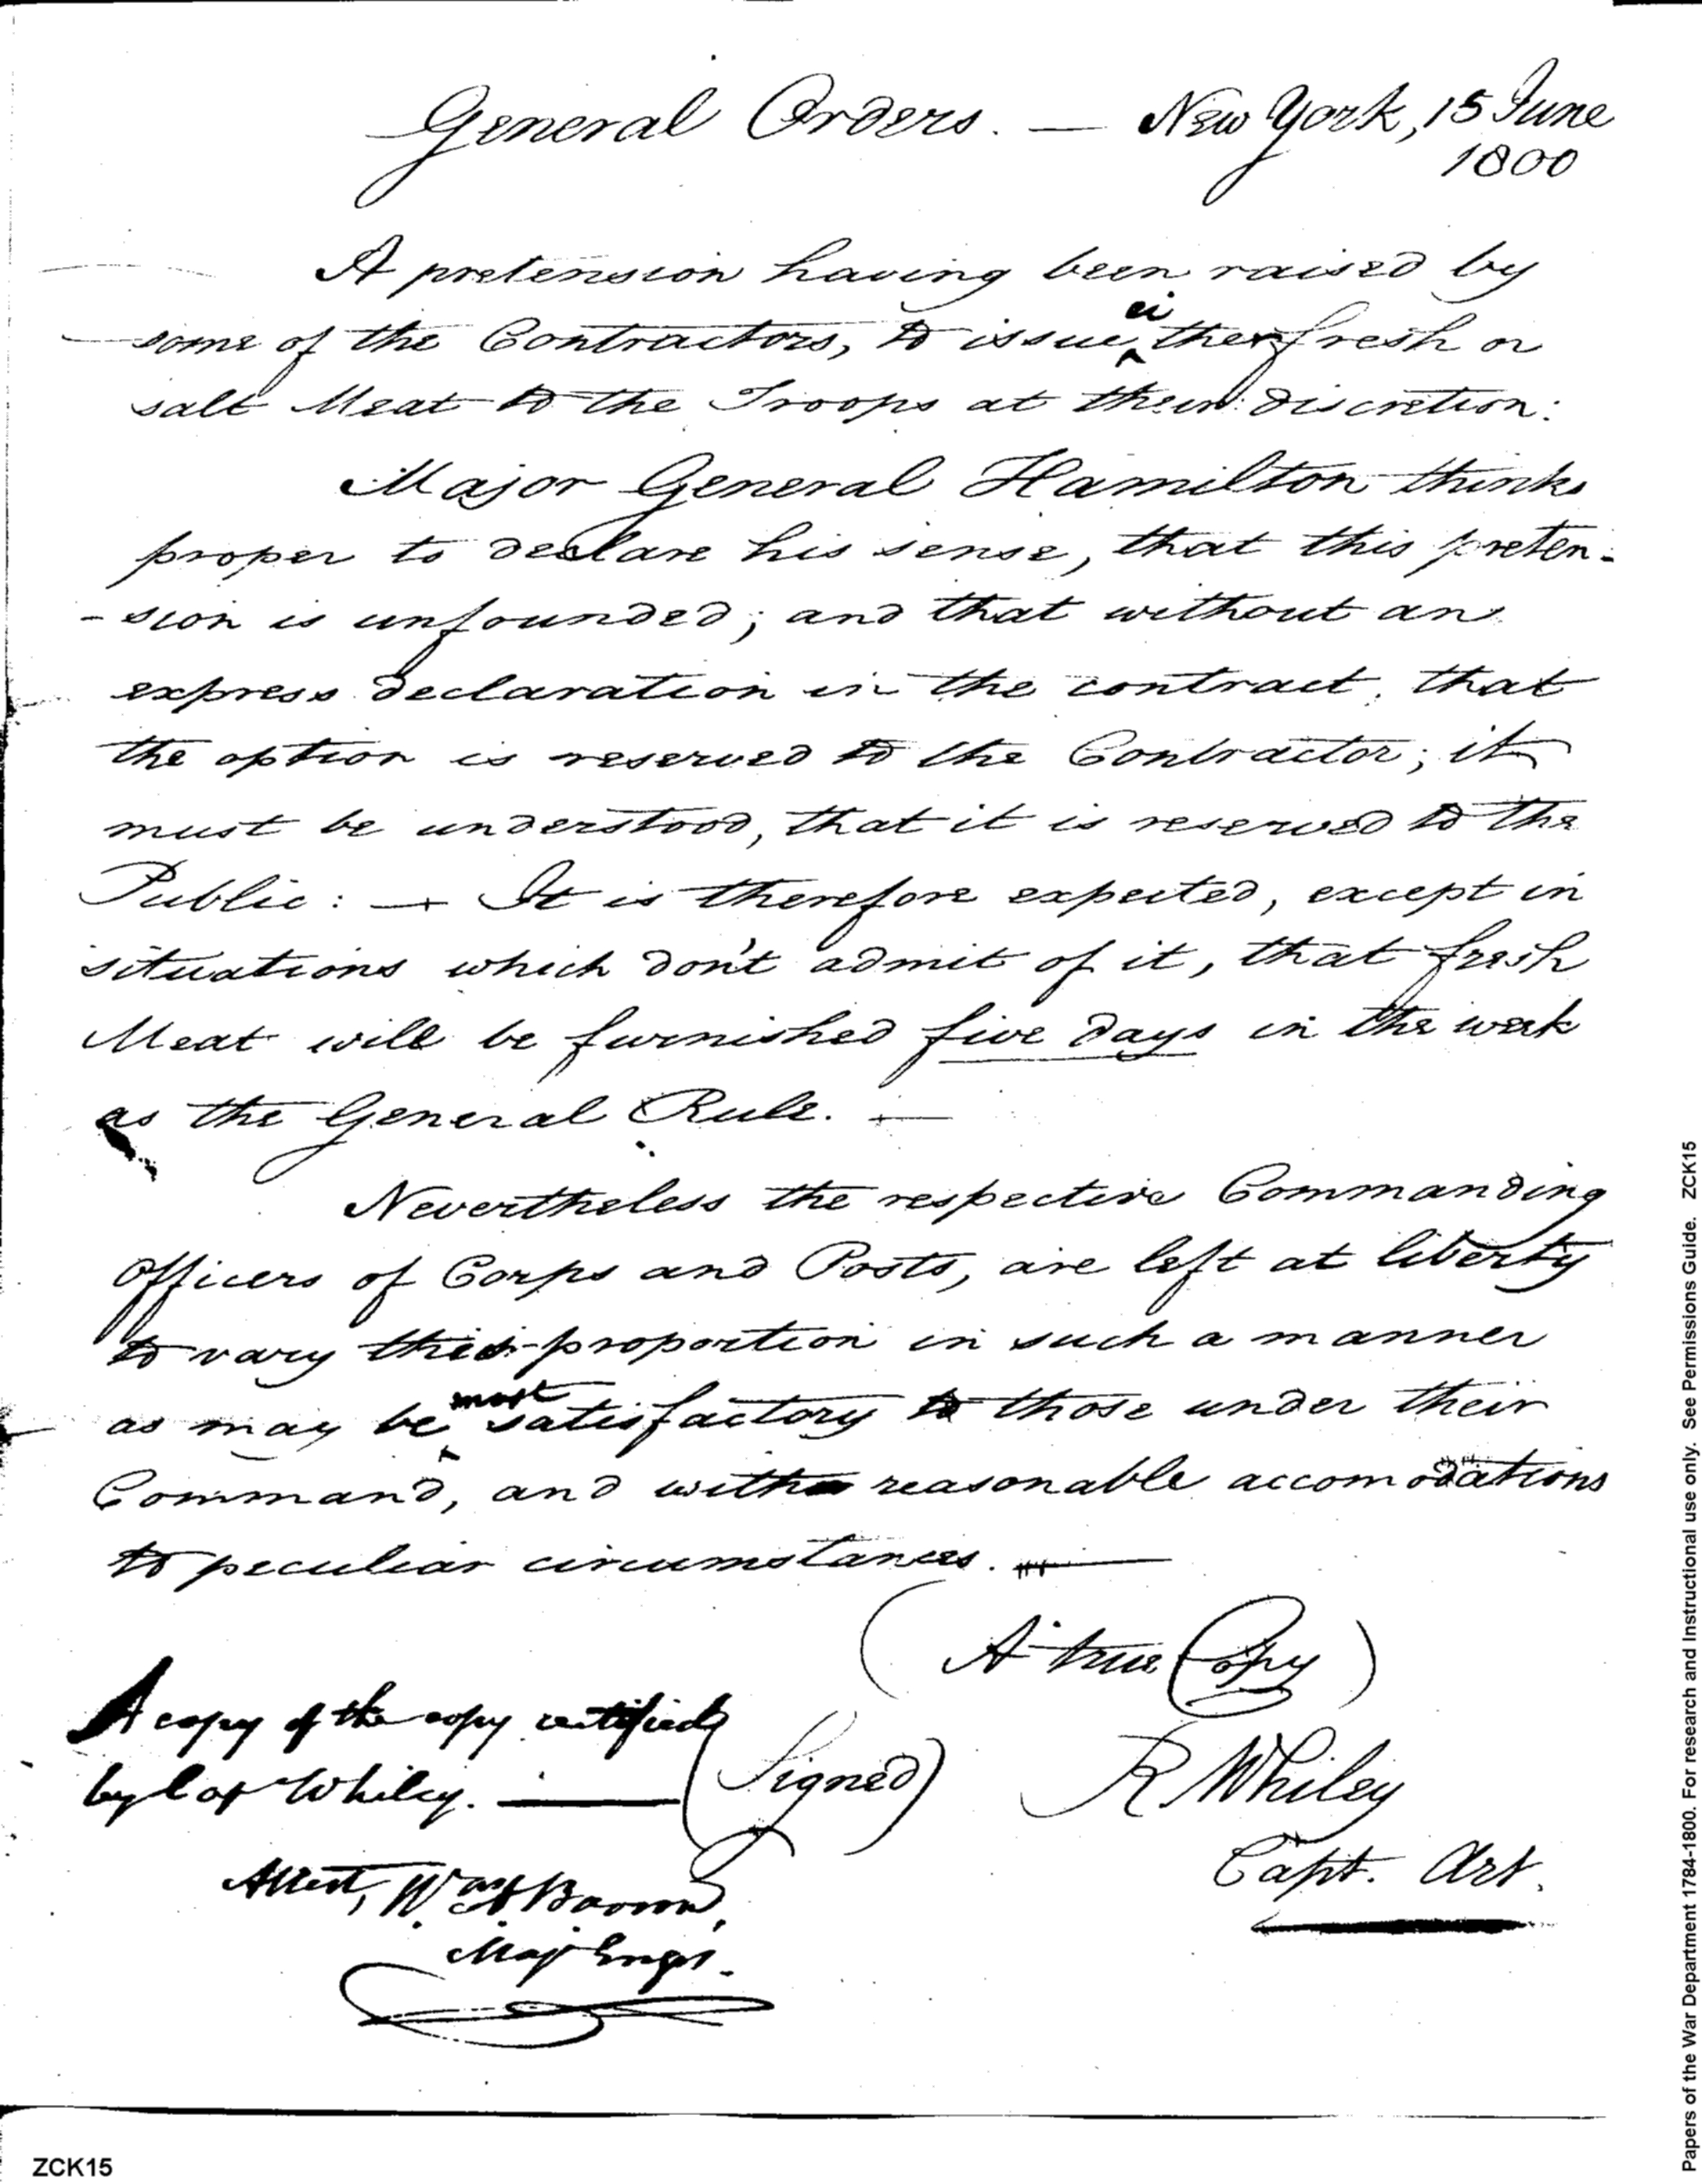 General Orders. — New York, 15 June
1800
A pretension having been raised by
some of the Contractors, to issue either fresh or
salt Meat to the Troops at their discretion:
Major General Hamilton thinks
proper to declare his sense, that this preten-
-sion is unfounded; and that without an
express declaration in the contract, that
the option is reserved to the Contractor; it
must be understood, that it is reserved to the
Public: — It is therefore expected, except in
situations which don't admit of it, that fresh
Meat will be furnished five days in the week
as the General Rule. —
Nevertheless the respective Commanding
Officers of Corps and Posts, are left at liberty
to vary this proportion in such a manner
as may be most satisfactory to those under their
Command, and with reasonable accomodations
to peculiar circumstances. —
(A true Copy)
A copy of the copy certified
by Cap Whiley. —
(Signed) R Whiley
Capt. Art.
Attest, Wm
Maj Engrs.
Papers of the War Department 1784-1800. For research and Instructional use only. See Permissions Guide. ZCK15
ZCK15